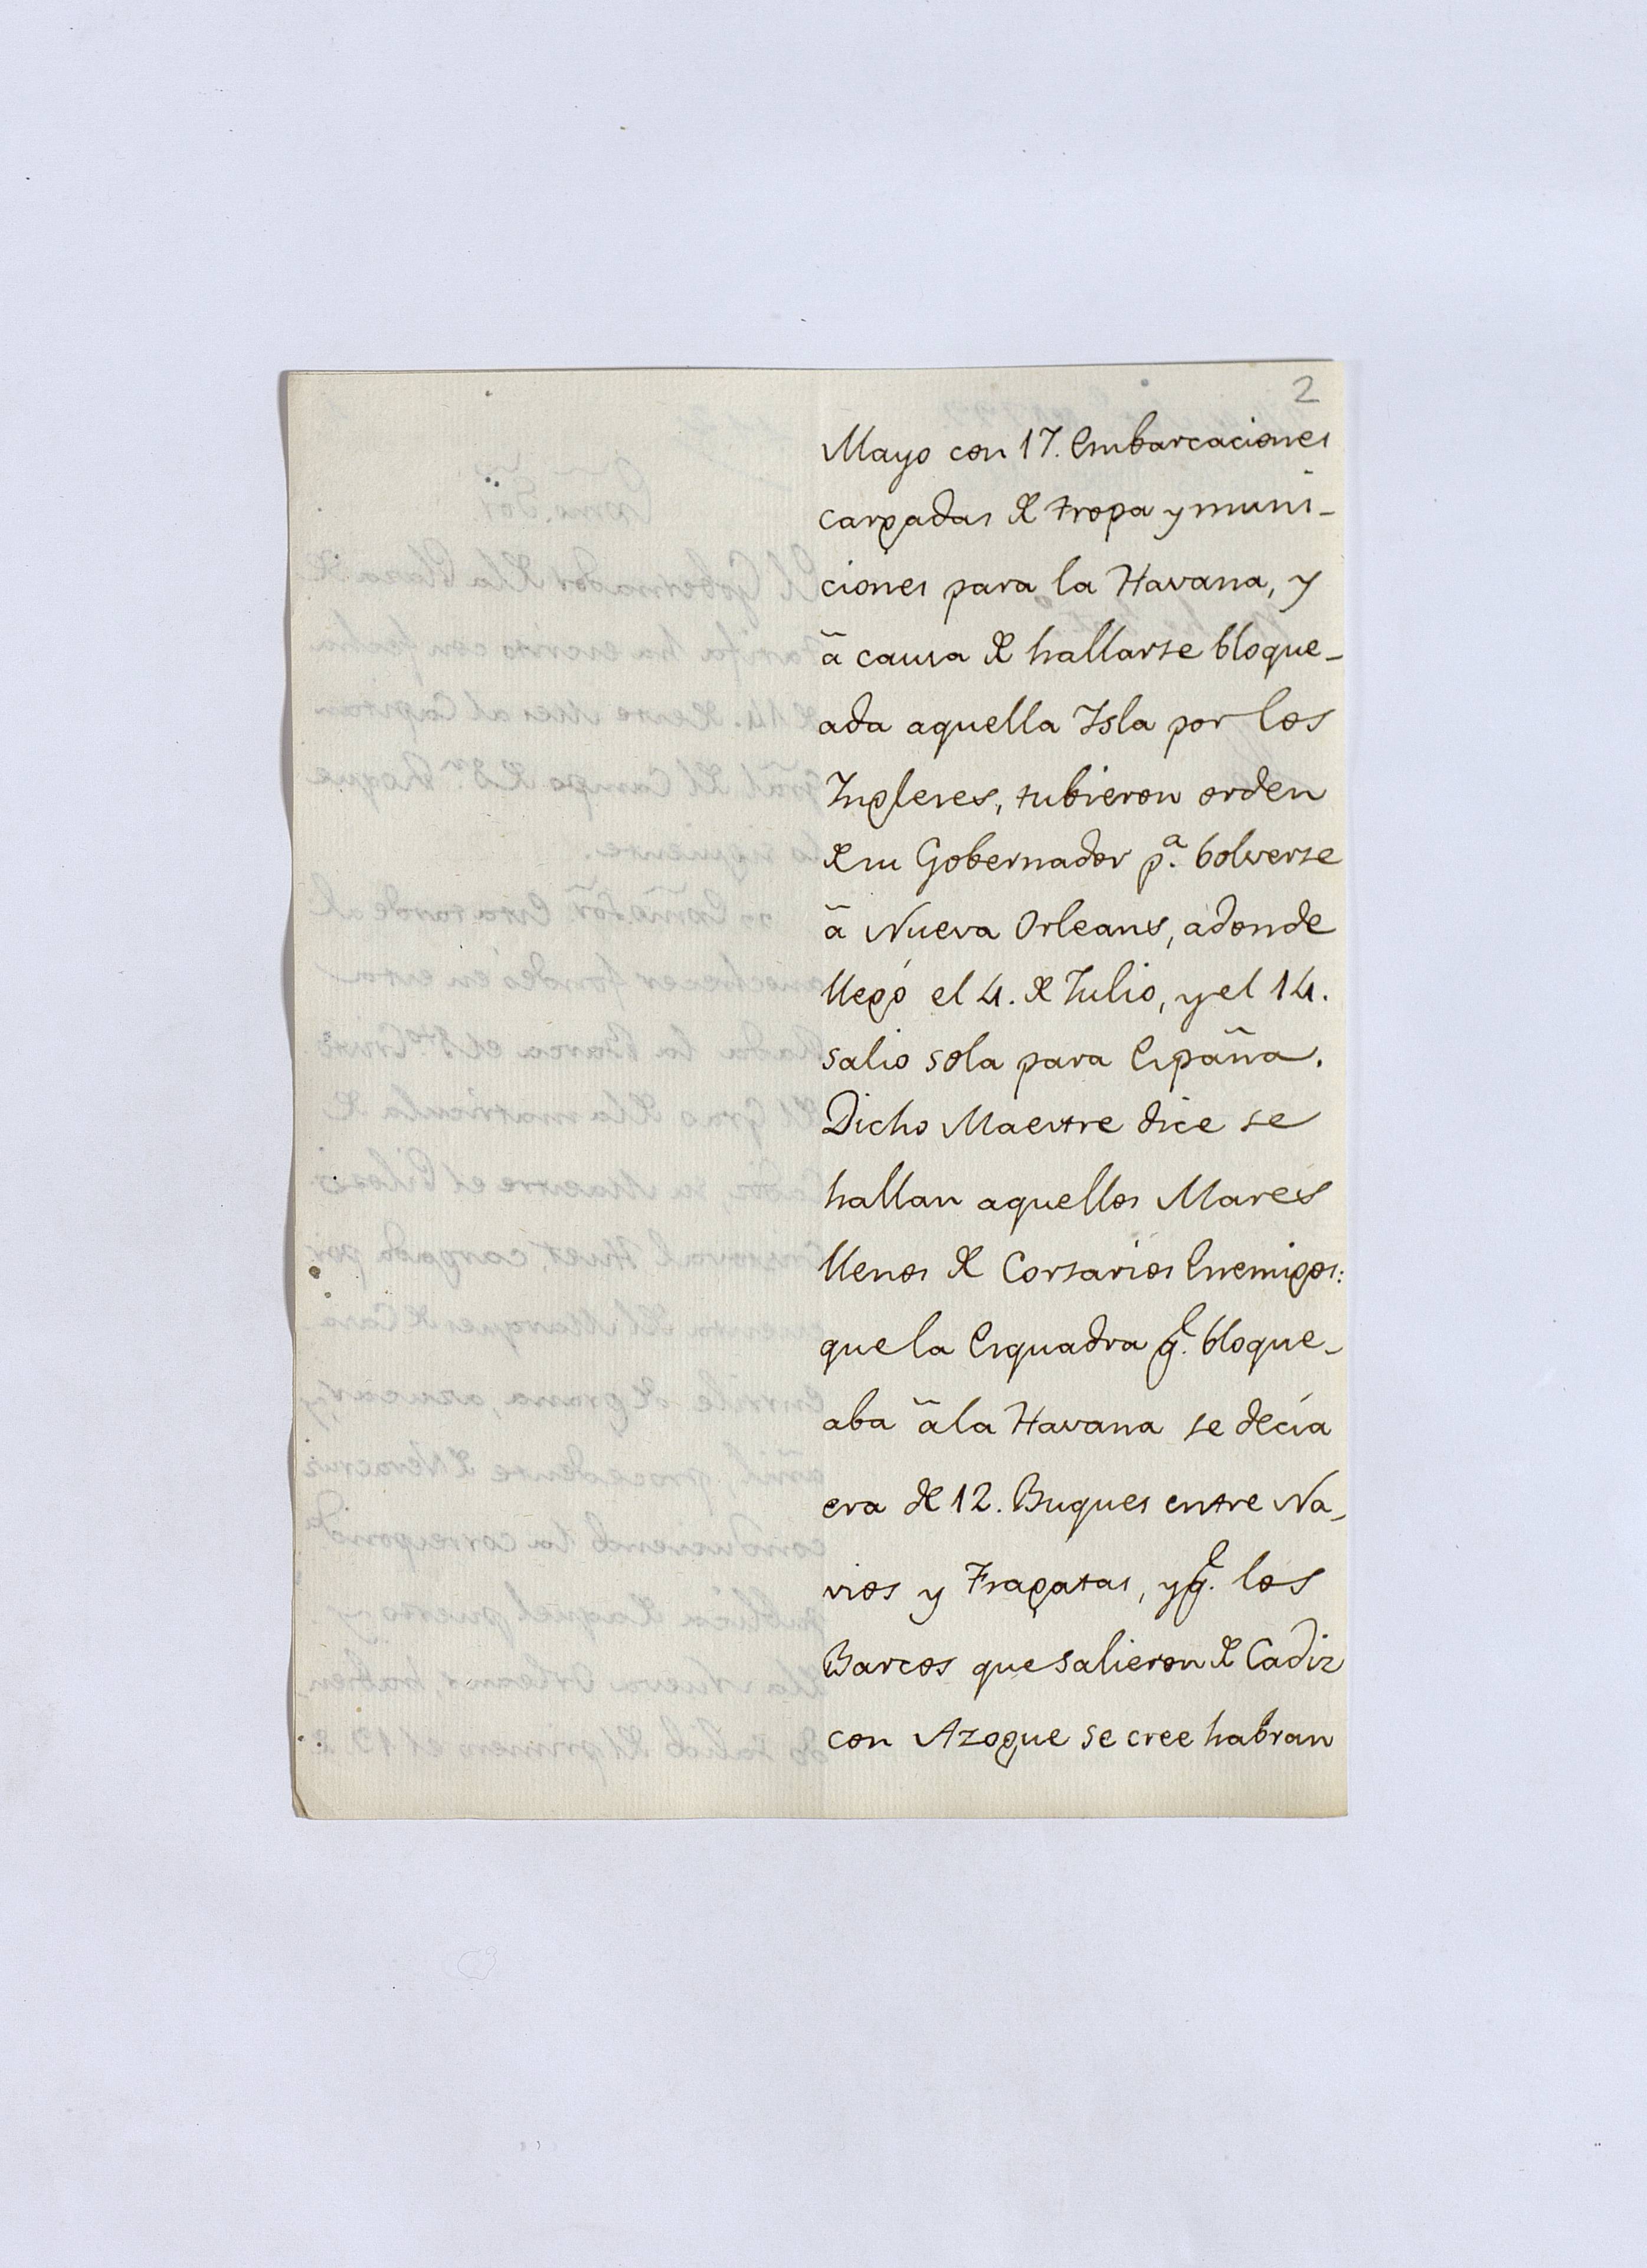 2
Mayo con 17. Embarcaciones
cargadas de tropa y muni-
ciones para la Havana, y
ã causa de hallarse bloque-
ada aquella Isla por los
Ingleses, tubieron orden
de su Gobernador pª. bolverse
ã Nueva Orleans, adonde
llegó el 4. de Julio, y el 14.
salio sola para España.
Dicho Maestre dice se
hallan aquellos Mares
llenos de Corsarios Enemigos:
que la Esquadra q̃. bloque-
aba ã la Havana se decia
era de 12. Buques entre Na-
vios y Fragatas, y q̃. los
Barcos que salieron de Cadiz
con Azogue se cree habran